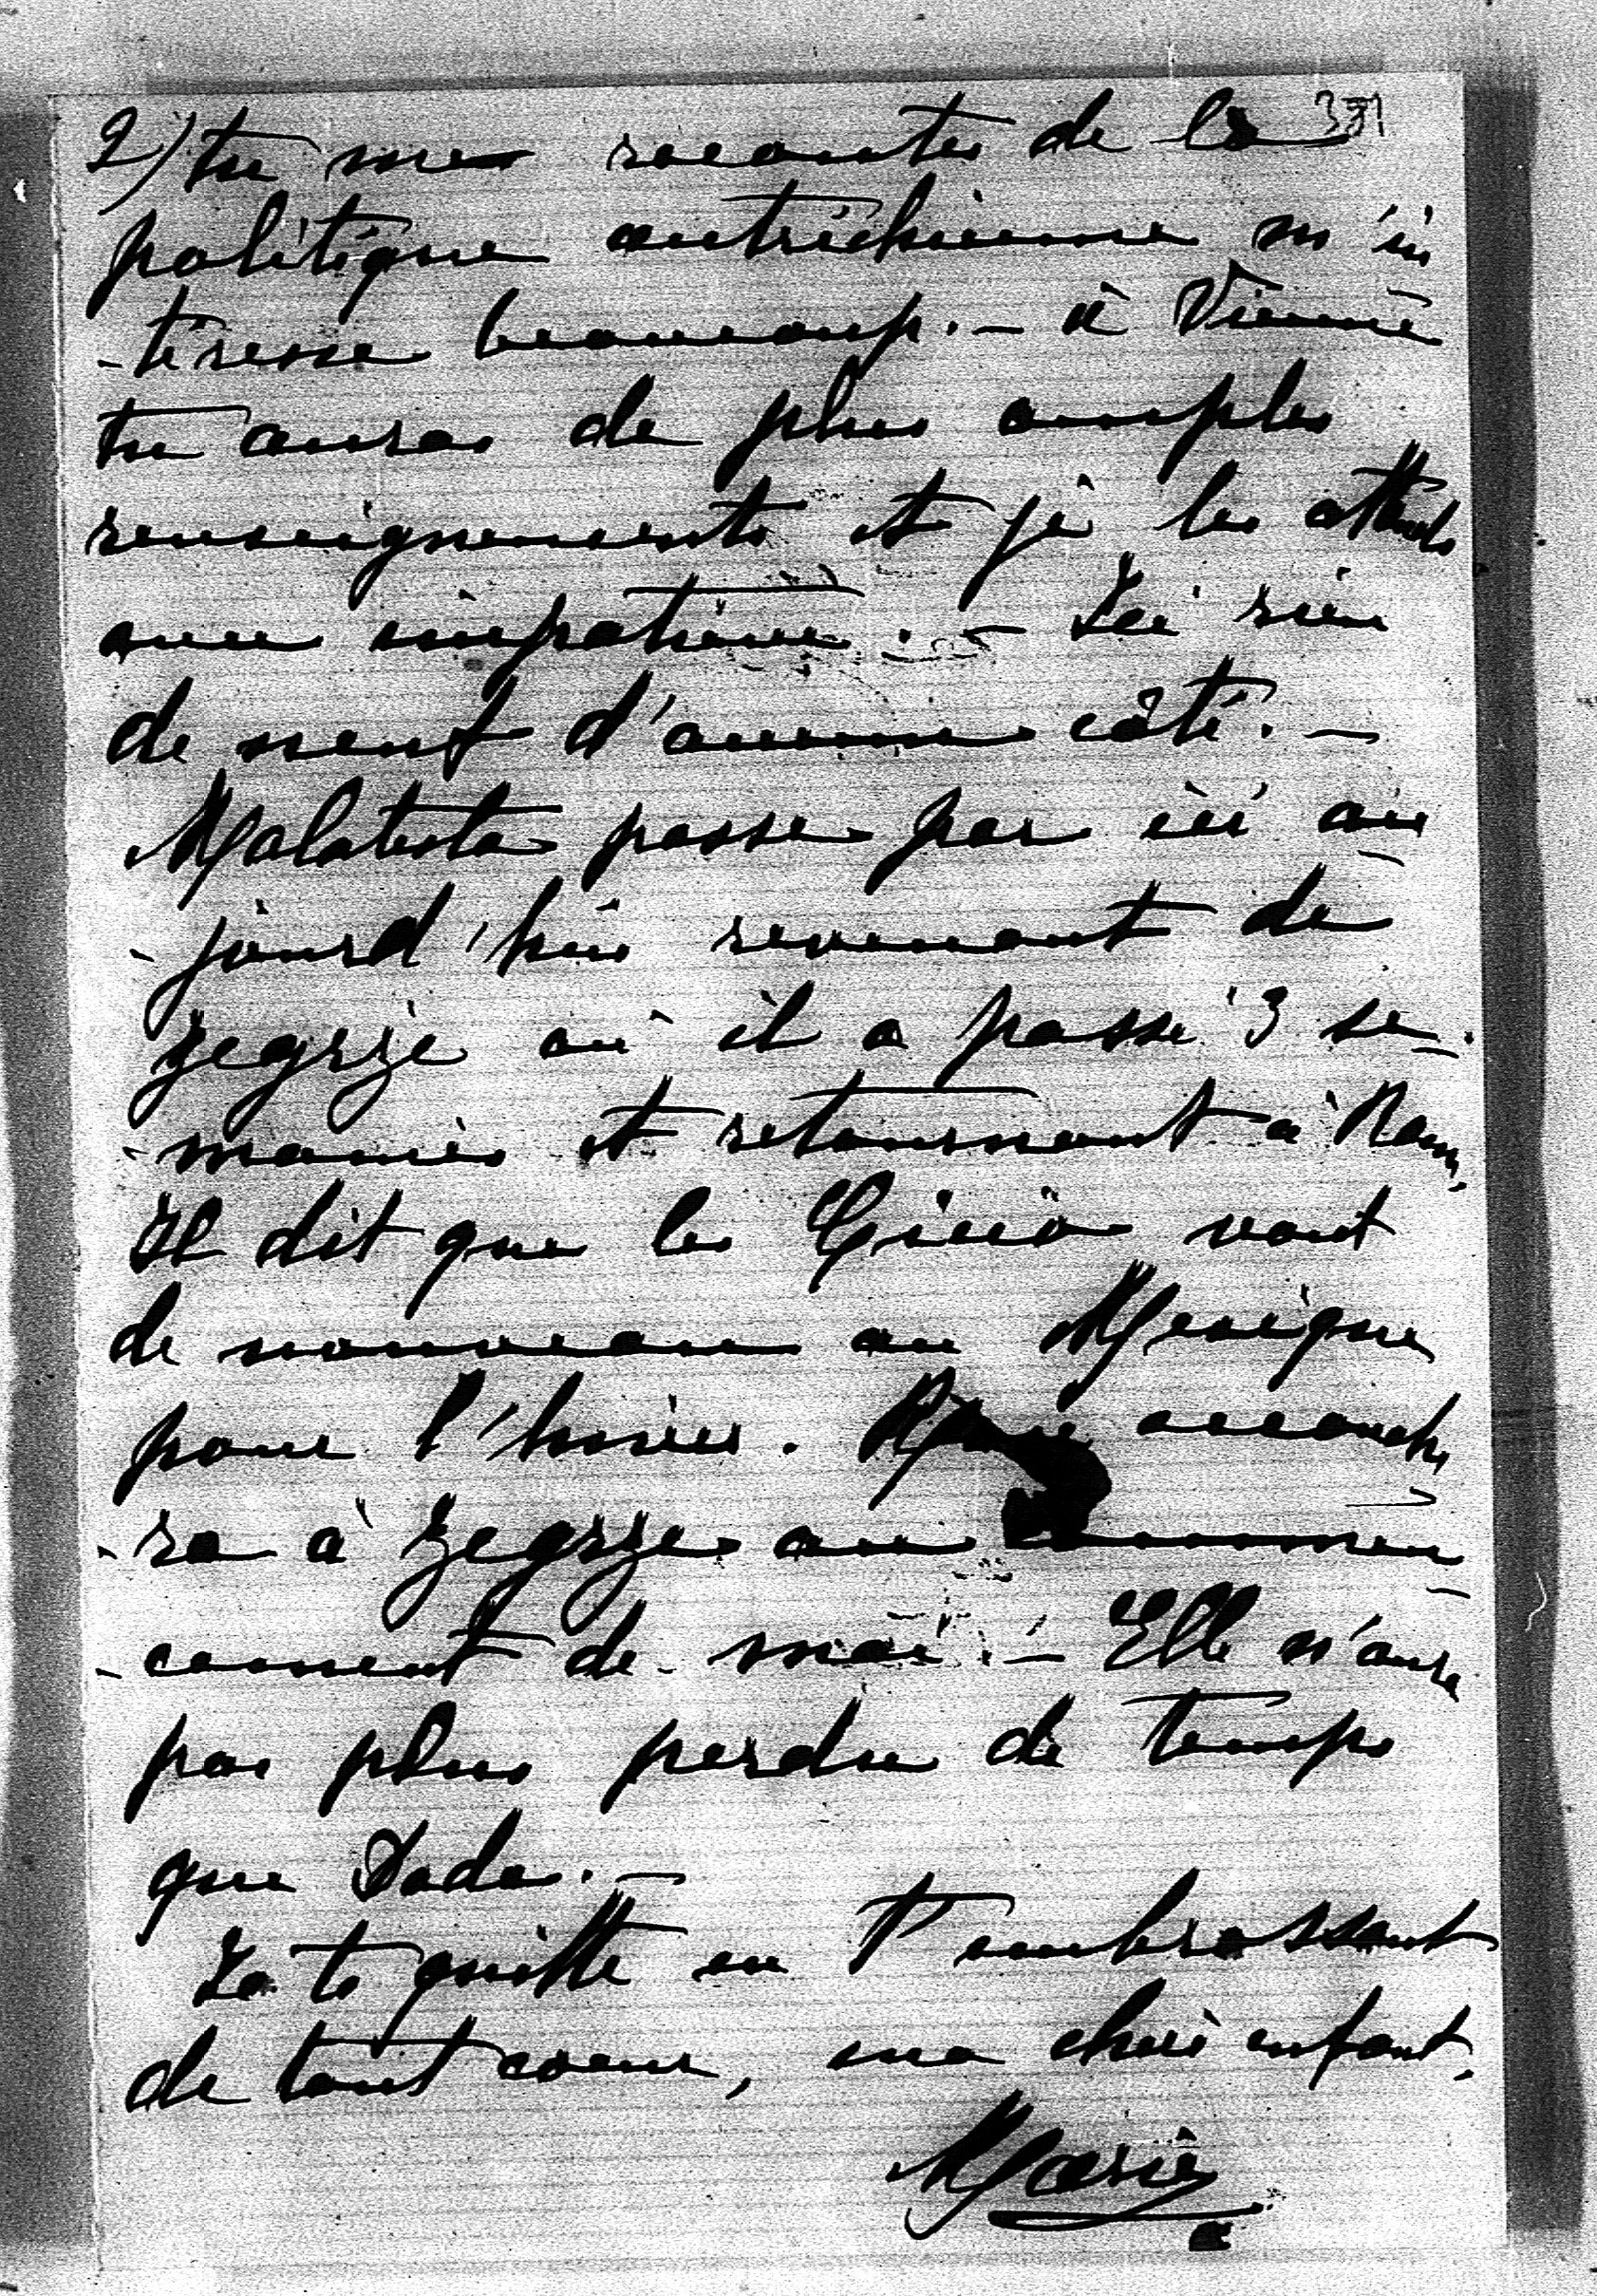 2) tu me racontes de la 331
politique autrichienne m'in
-téresse beaucoup. – à Vienne
tu auras de plus amples
renseignements et je les attends
avec impatience. – Ici rien
de neuf d'aucun côté. –
Malatesta passe par ici au
-jourd'hui revenant de
Zegrze où il a passé 3 se-
-maines et retournant à Rome
Il dit que les vont
de nouveau au Mexique
pour l'hiver. accouche
-ra à Zegrze au commen
-cement de mai. – Elle n'aura
pas plus perdu de temps
que Dada. –
Je te quitte en t'embrassant
de tout coeur, ma chère enfant.
Marie